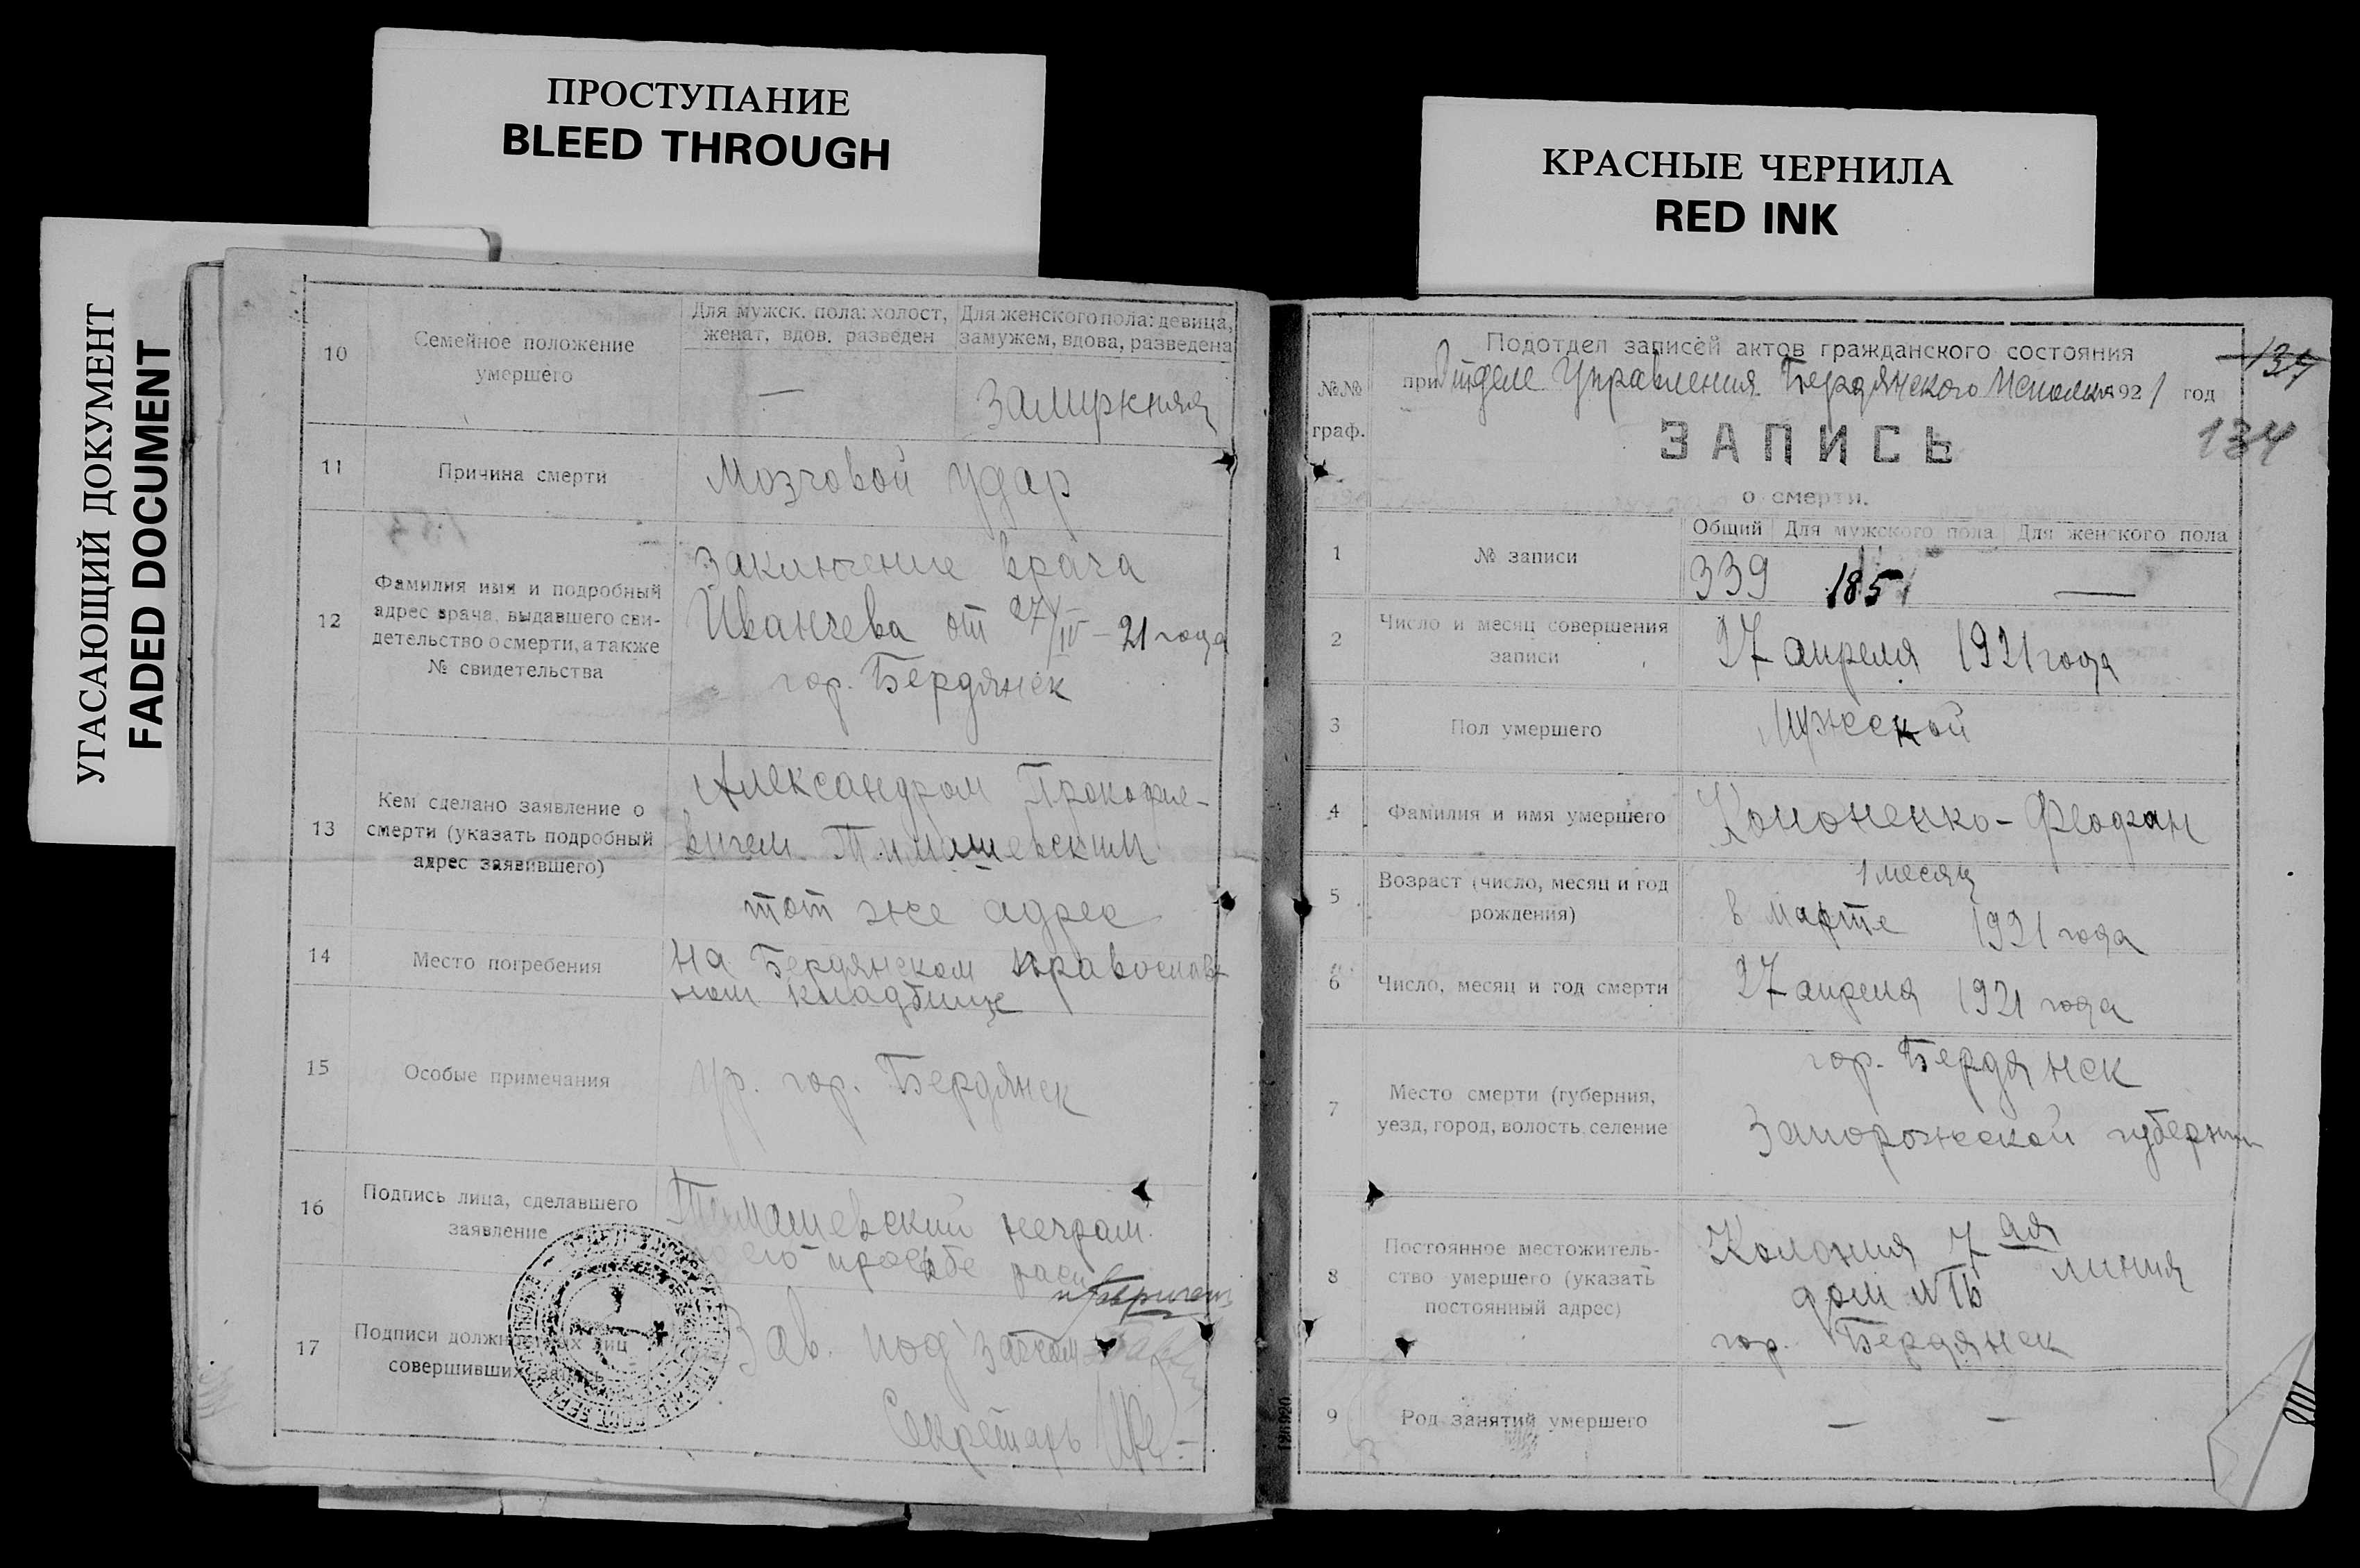 ПРОСТУПАНИЕ
BLEED THROUGH
КРАСНЫЕ ЧЕРНИЛА
RED INK
УГАСАЮЩИЙ ДОКУМЕНТ
FADED DOCUMENT
10
Семейное положение
умершего
Для мужск. пола: холост,
женат, вдов. разведен
Для женского пола: девица,
замужем, вдова, разведена
—
Замужняя
11
Причина смерти
Мозговой удар
12
Фамилия имя и подробный
адрес врача, выдавшего сви-
детельство о смерти, а также
№ свидетельства
Заключение врача
Иванчева от 27/IV – 21 года
гор. Бердянск
13
Кем сделано заявление о
смерти (указать подробный
адрес заявившего)
Александром Прокофие-
вичем Тимашевским
тот же адрес
14
Место погребения
на Бердянском православ-
ном кладбище
15
Особые примечания
ур. гор. Бердянск
16
Подпись лица, сделавшего
заявление
Тимашевский неграм.
по его просьбе расп
17
Подписи должностных лиц
совершивших запись
Зав. под
Секретарь
Подотдел записей актов гражданского состояния
№№
граф.
при Отделе Управления Бердянского Исполкома 1921 год
134
134
ЗАПИСЬ
о смерти.
1
№ записи
Общий
Для мужского пола
Для женского пола
339
185
—
2
Число и месяц совершения
записи
27 апреля 1921 года
3
Пол умершего
Мужской
4
Фамилия и имя умершего
Кононенко – Феофан
5
Возраст (число, месяц и год
рождения)
1 месяц
в марте 1921 года
6
Число, месяц и год смерти
27 апреля 1921 года
7
Место смерти (губерния,
уезд, город, волость, селение
гор. Бердянск
Запорожской губернии
8
Постоянное местожитель-
ство умершего (указать
постоянный адрес)
Колония 7ая
линия
дом №
гор. Бердянск
9
Род занятий умершего
— —